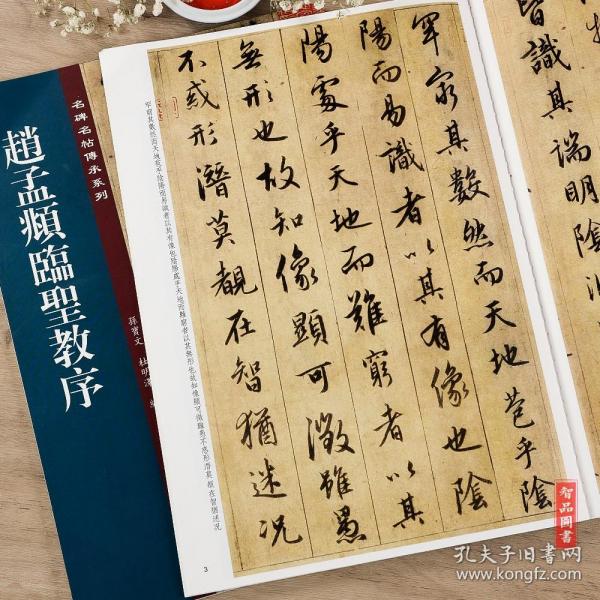 皆識其端明陰
罕窮其數然而天地苞乎陰
陽而易識者以其有像也陰
陽處乎天地而難窮者以其
無形也故知像顯可徵雖愚
不惑形潛莫覩在智猶迷况
罕窮其數然而天地苞乎陰陽而易識者以其有像也陰陽處乎天地而難窮者以其無形也故知像顯可徵雖愚不惑形潛莫覩在智猶迷况
3
名碑名帖傳承系列
趙孟頫臨聖教序
孫寶文 杜明
智品圖書
孔夫子旧书网
www.kongfz.com